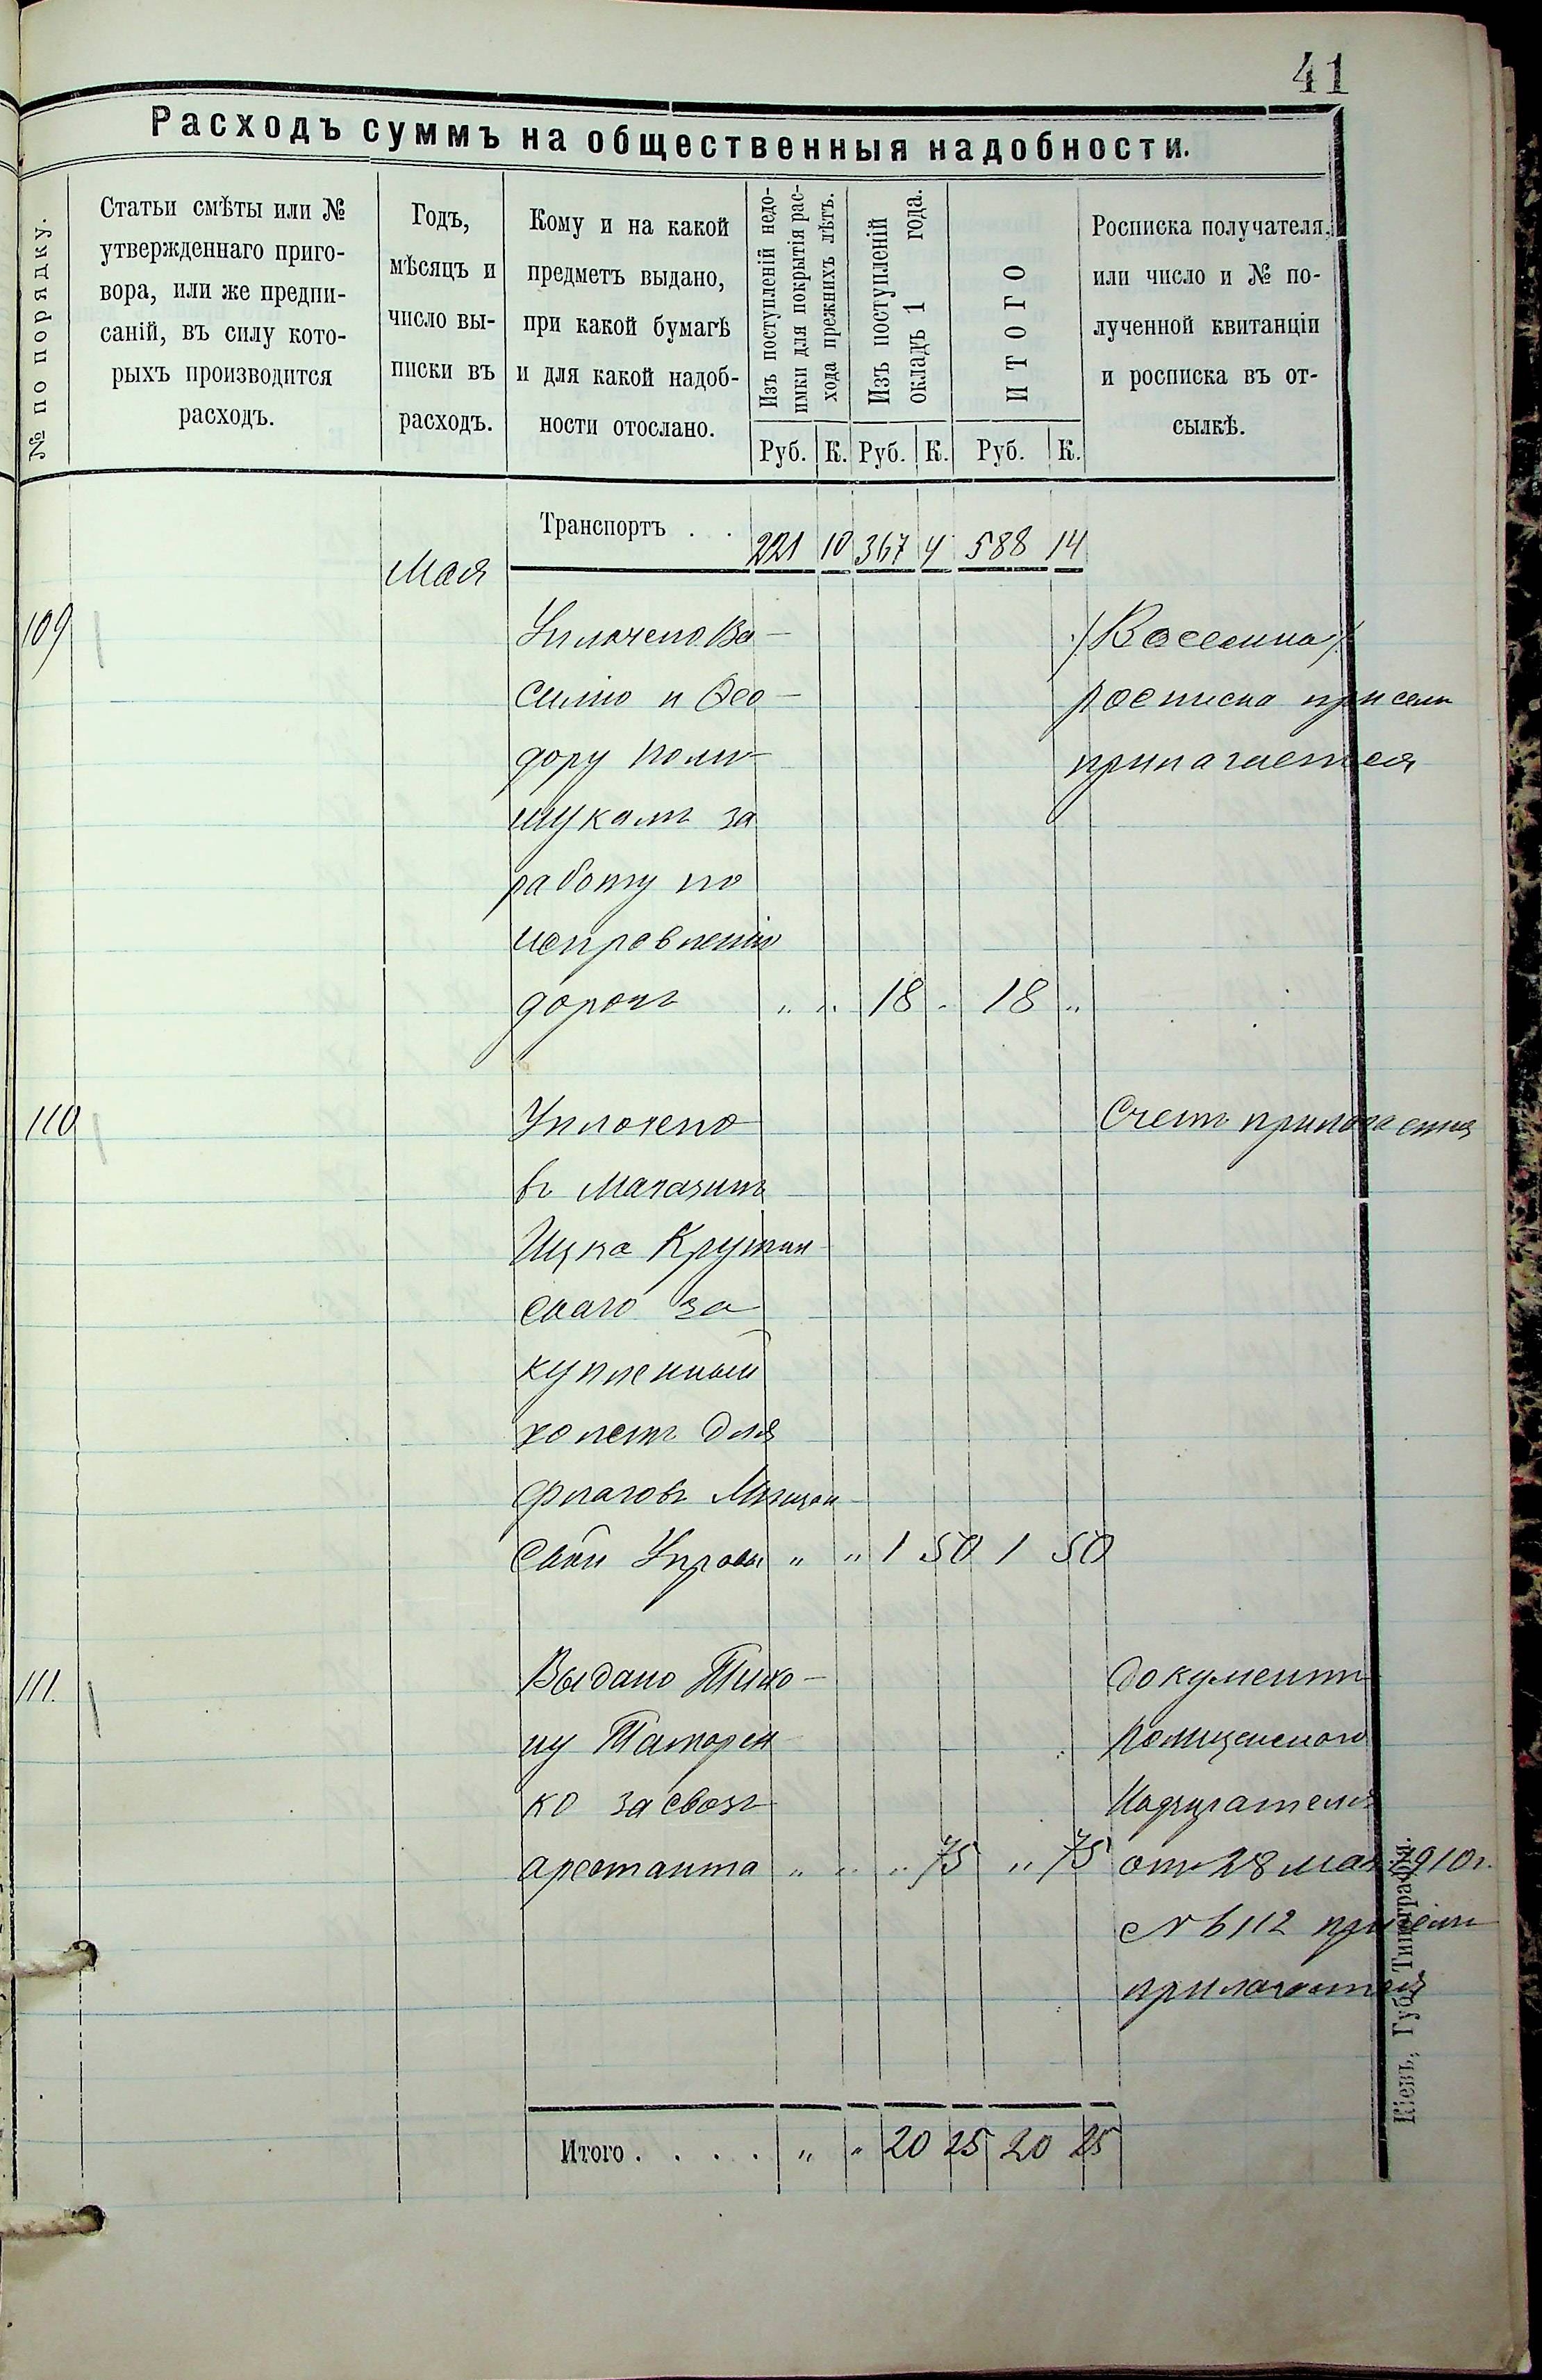 41
Расходъ суммъ на общественныя надобности.
№ по порядку.
Статьи смѣты или №
утвержденнаго приго-
вора, или же предпи-
саній, въ силу кото-
рыхъ производится
расходъ.
Годъ,
мѣсяцъ и
число вы-
писки въ
расходъ.
Кому и на какой
предметъ выдано,
при какой бумагѣ
и для какой надоб-
ности отослано.
Изъ поступленій недо-
имки для покрытія рас-
хода прежнихъ лѣтъ.
Изъ поступленій
окладъ 1 года.
ИТОГО
Руб. К. Руб. К. Руб. К.
Росписка получателя,
или число и № по-
лученной квитанціи
и росписка въ от-
сылкѣ.
Транспортъ . . 221 10 367 4 588 14
Мая
109 Уплочено Ва-
силію и Ѳео-
дору Поли-
щукамъ за
работу по
исправленію
дорогъ " " 18 " 18 "
росписка при семъ
прилагается
110 Уплочено
въ магазинъ
Ицка Кружан-
скаго за
купленный
холстъ для
флаговъ Мѣщан-
ской Управы " " 1 50 1 50
Счетъ прилагается
111. Выдано Тихо-
ну Таторен-
ко за свозъ
арестанта " " " 75 " 75
Документъ
Полицейскаго
Надзирателя
отъ 28 мая 1910 г.
№ 6112 при семъ
прилагается
Итого . . . . " " 20 25 20 25
Кіевъ, Губ. Типографія.